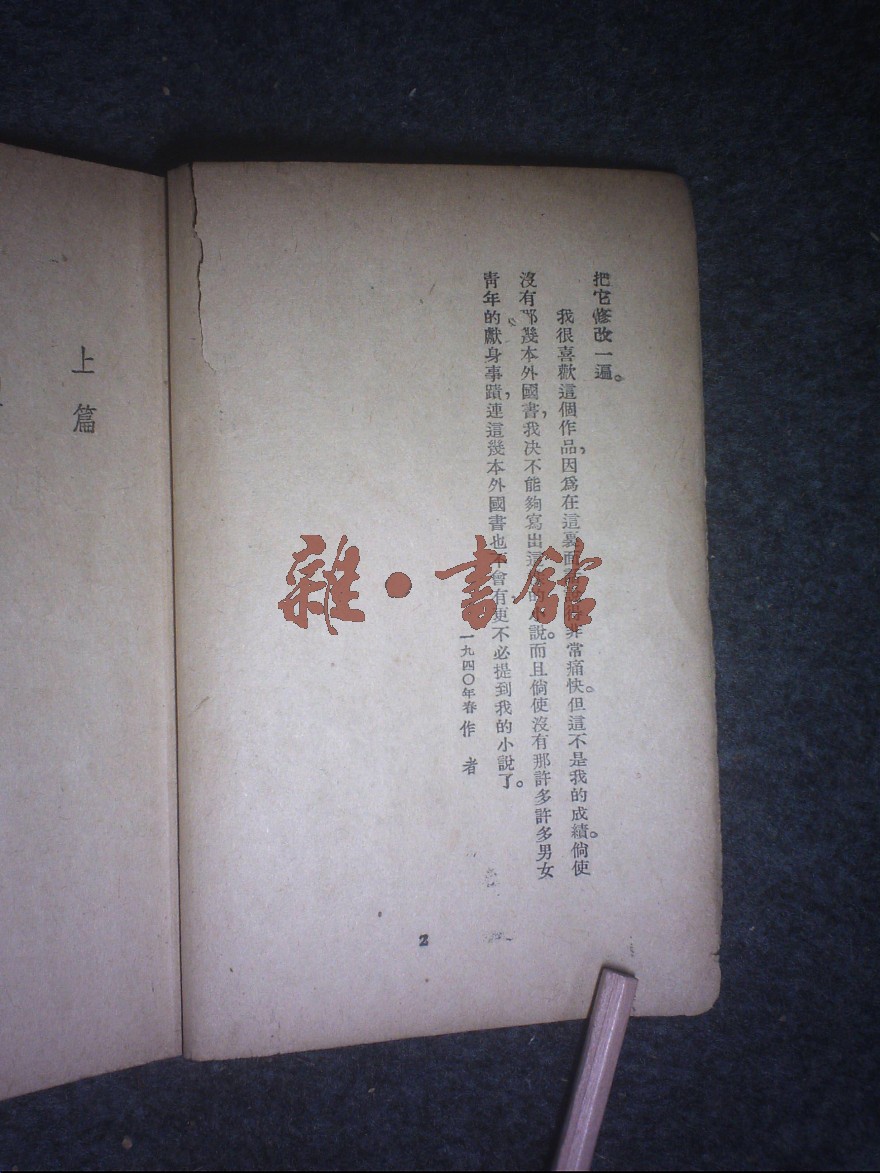 把它修改一遍。
我很喜歡這個作品,因爲在這裏面非常痛快。但這不是我的成績。倘使
沒有那幾本外國書,我决不能夠寫出這的小說。而且倘使沒有那許多許多男女
靑年的獻身事蹟,連這幾本外國書也不會有,更不必提到我的小說了。
一九四〇年春作者
2
上篇
雜·書館